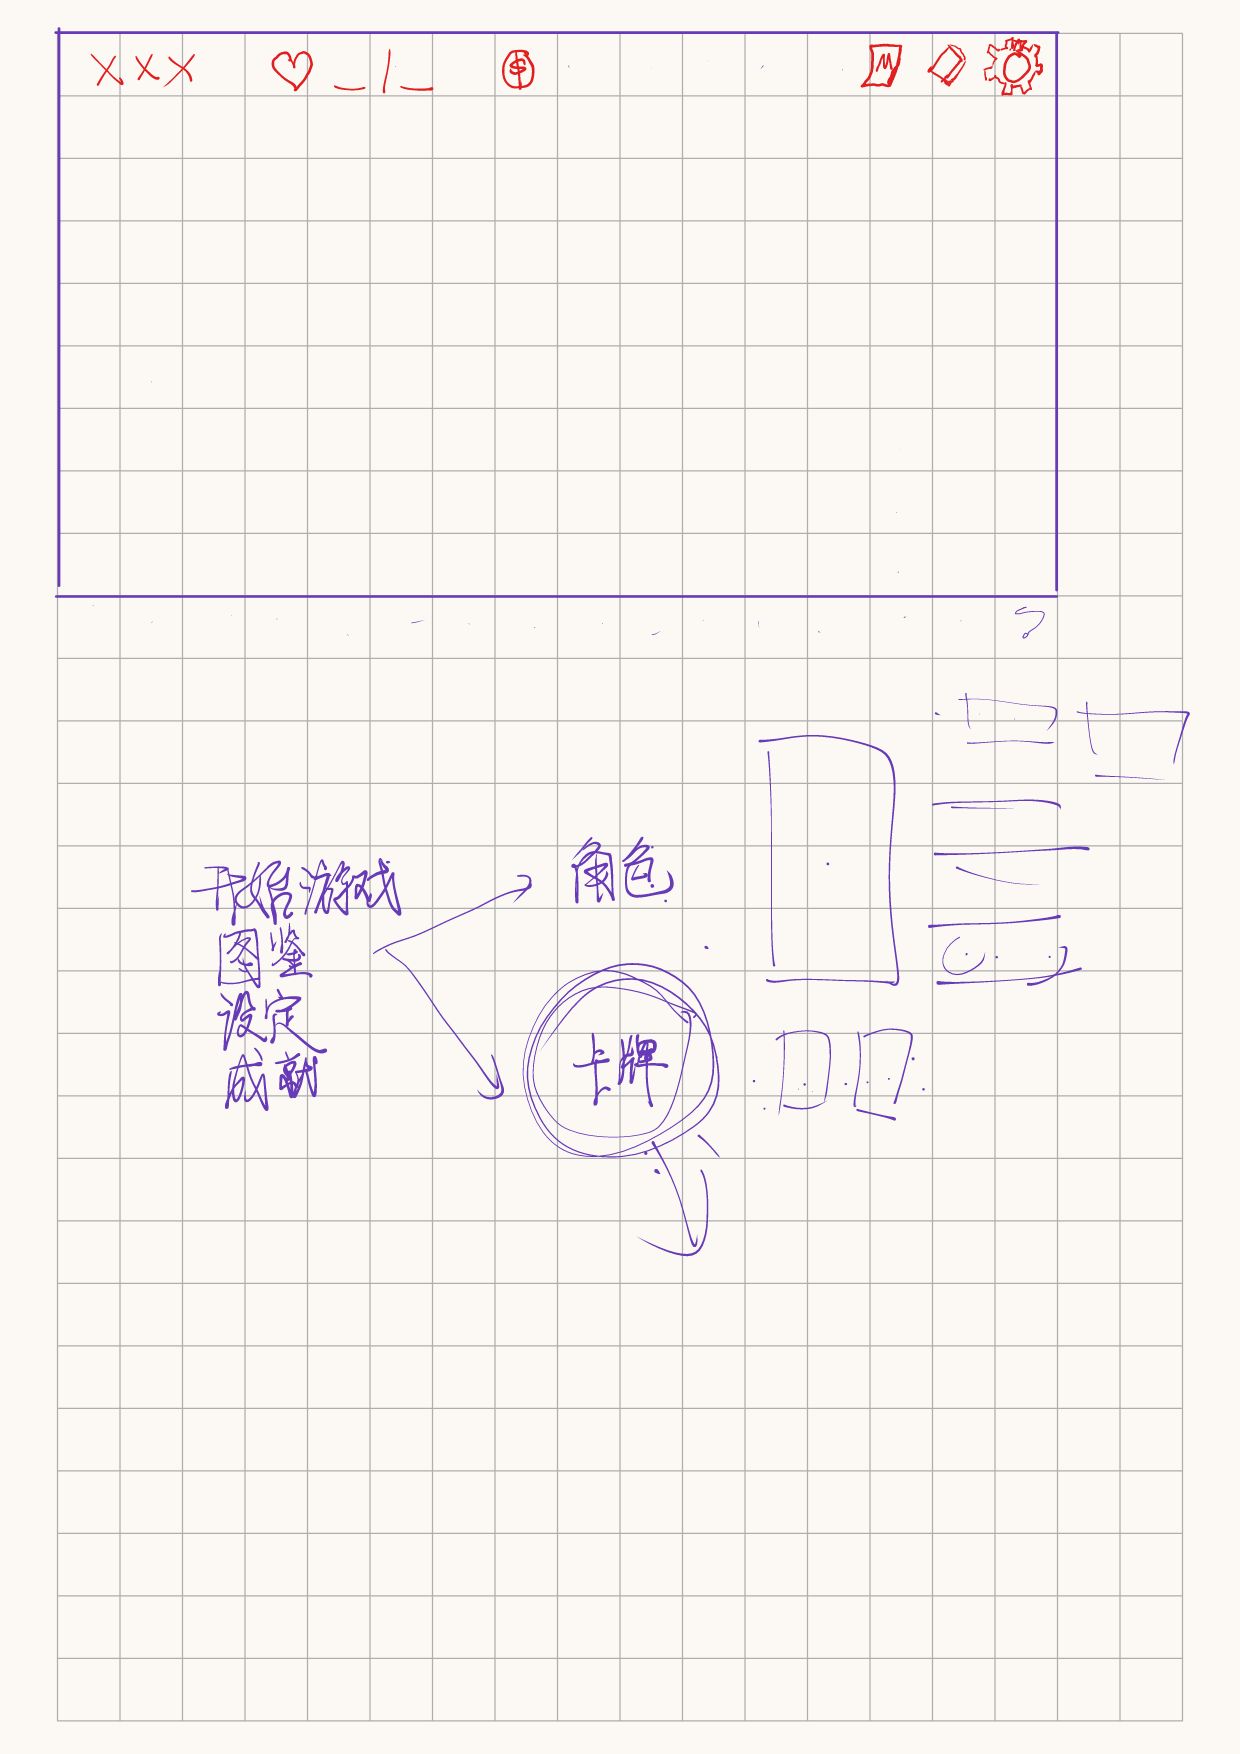 XXX _/_ $ M
?
开始游戏
图鉴
设定
成就
角色
卡牌